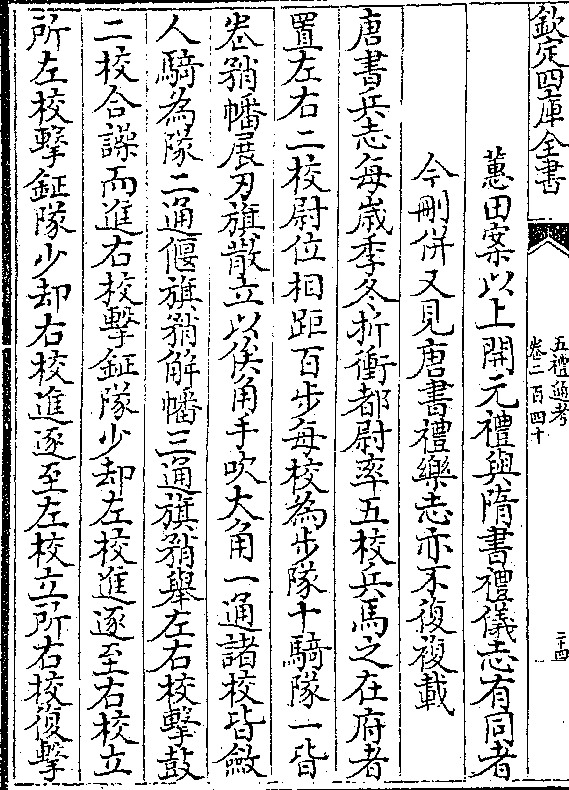 欽定四庫全書
五禮通考
卷二百四十
二十四
蕙田案以上開元禮與隋書禮儀志有同者
今刪併又見唐書禮樂志亦不復複載
唐書兵志每歲季冬折衝都尉率五校兵馬之在府者
置左右二校尉位相距百步每校為步隊十騎隊一皆
卷矟幡展刃旗散立以俟角手吹大角一通諸校皆斂
人騎為隊二通偃旗矟解幡三通旗矟舉左右校擊鼓
二校合譟而進右校擊鉦隊少却左校進逐至右校立
所左校擊鉦隊少却右校進逐至左校立所右校復擊